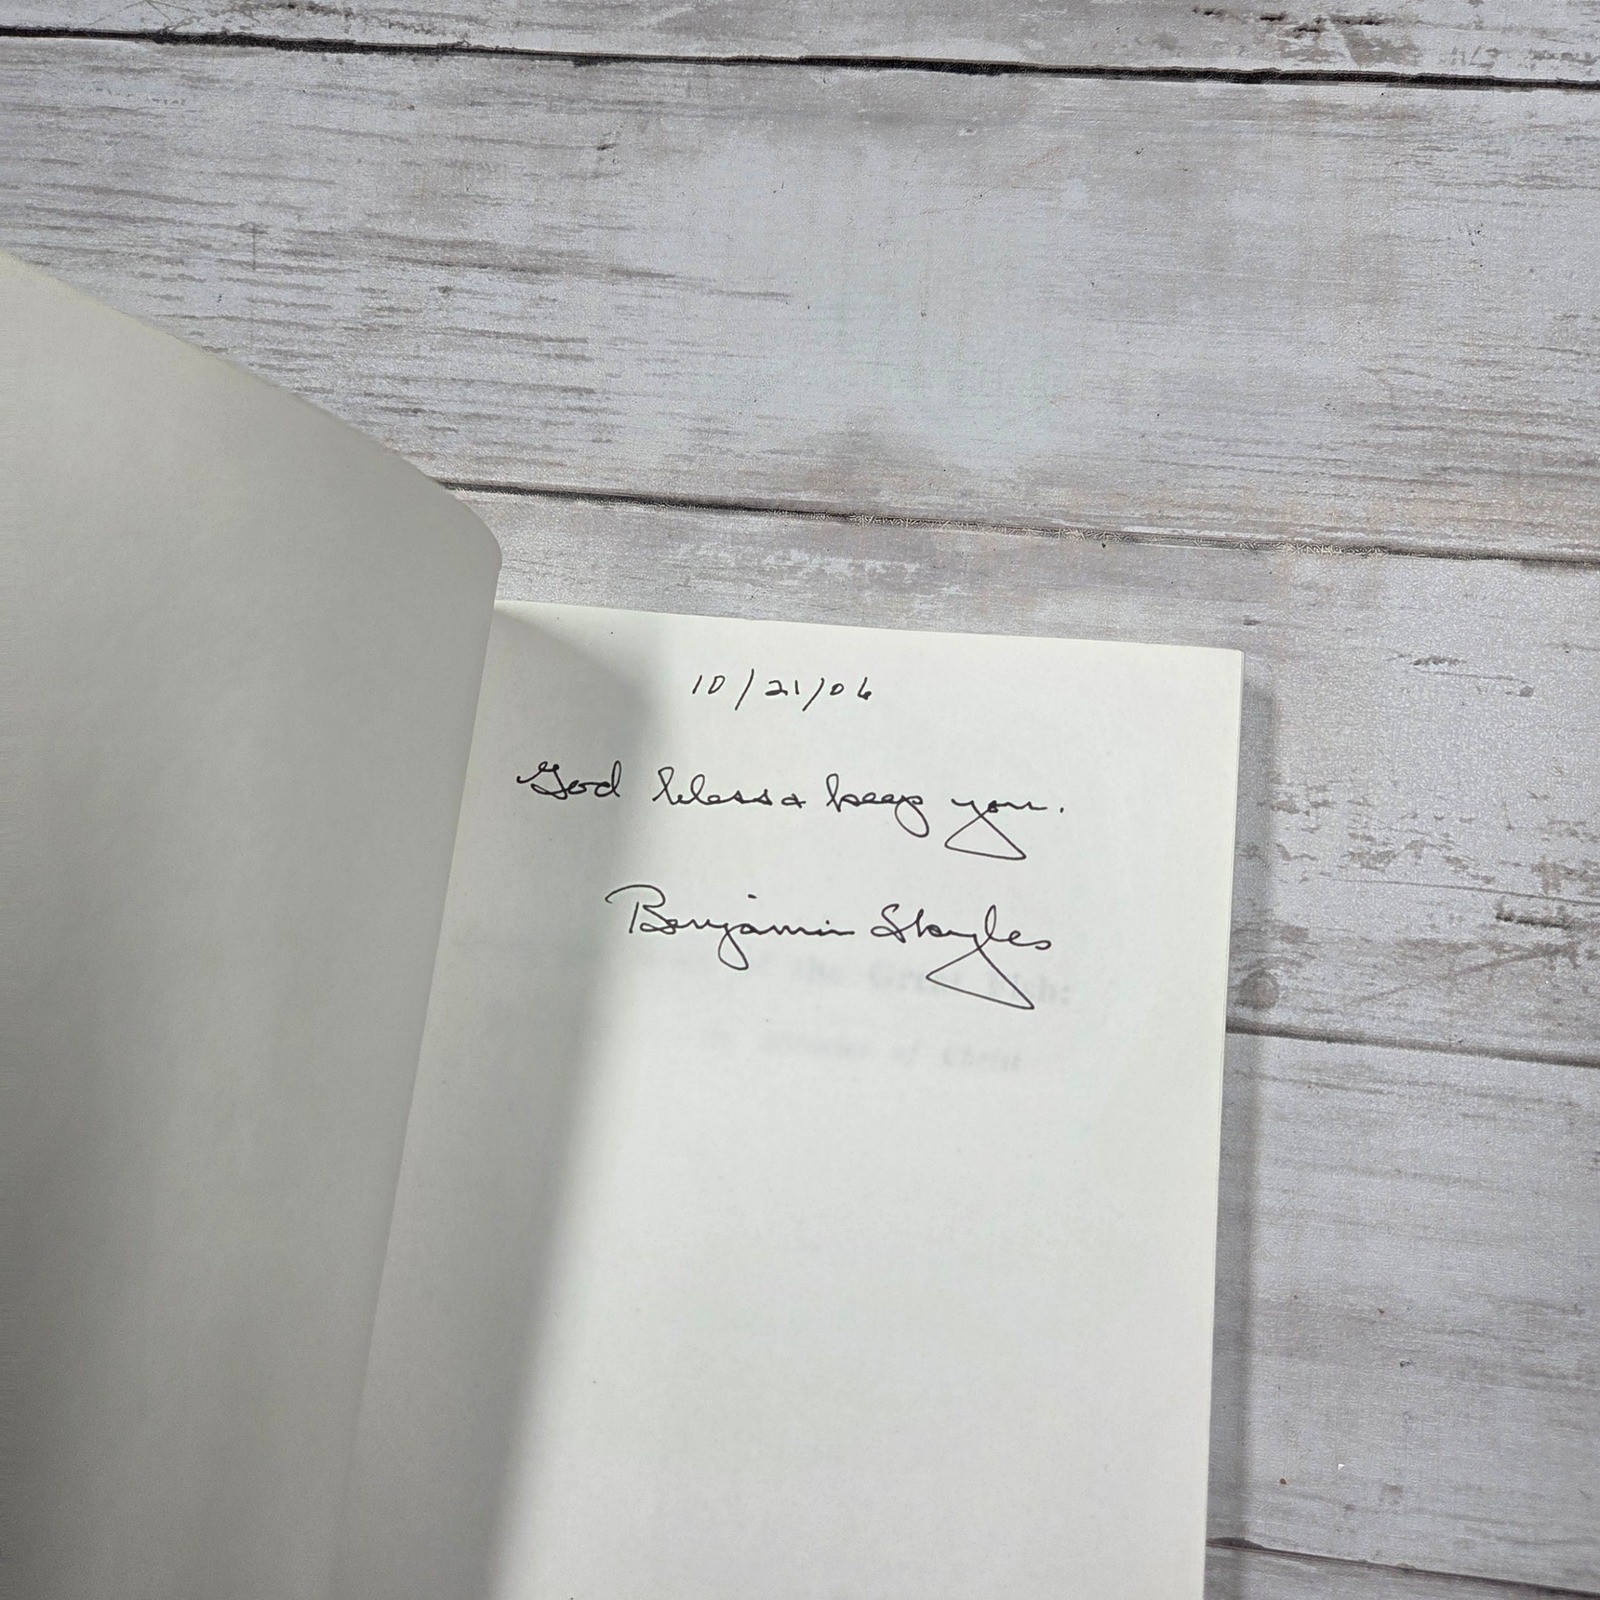 10/21/06
God bless & keep you.
Benjamin Skyles
of the Great Fish:
of Christ